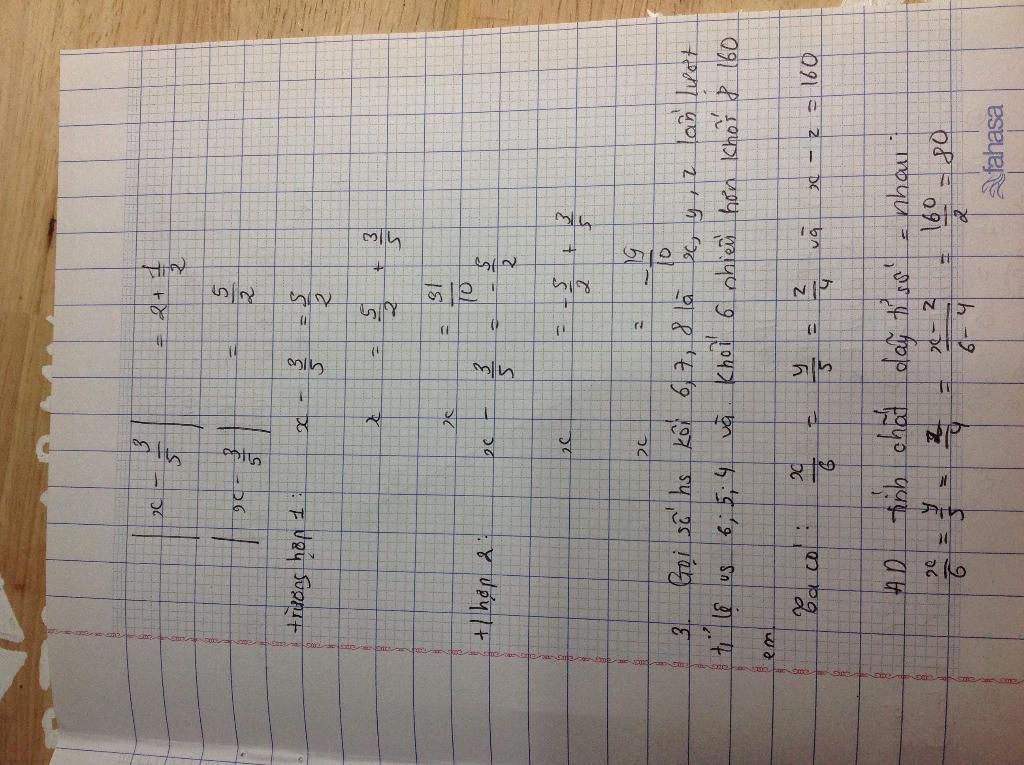 |x - 3/5| = 2 + 1/2
|x - 3/5| = 5/2
+trường hợp 1: x - 3/5 = 5/2
x = 5/2 + 3/5
x = 31/10
+thợp 2: x - 3/5 = - 5/2
x = - 5/2 + 3/5
x = - 19/10
3. Gọi số hs kối 6, 7, 8 là x, y, z lần lượt
tỉ lệ vs 6; 5; 4 và khối 6 nhiều hơn khối 8 160
em.
Ta có: x/6 = y/5 = z/4 và x - z = 160
AD tính chất dãy tỉ số = nhau:
x/6 = y/5 = z/4 = x - z/6 - 4 = 160/2 = 80
fahasa